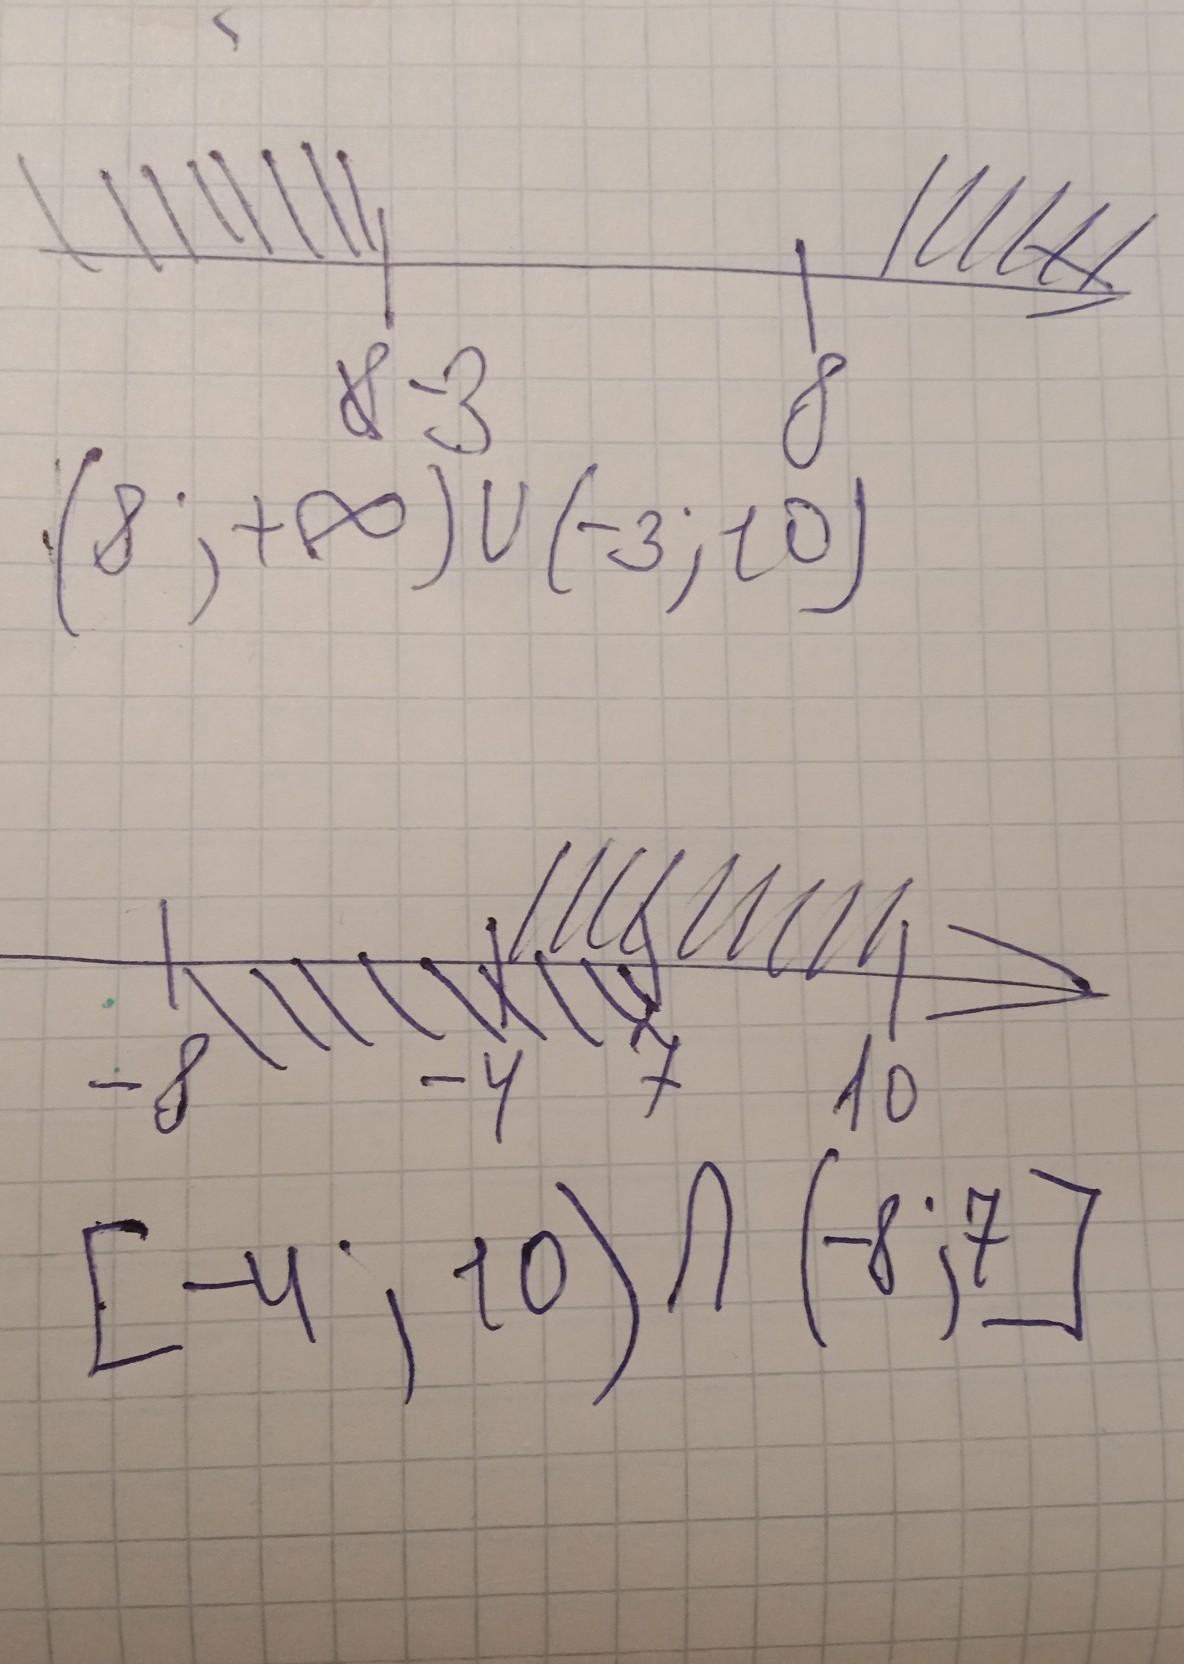 -3 8
(8; +∞) ∪ (-3; 10)
-8 -4 7 10
[-4; 10) ∩ (-8; 7]